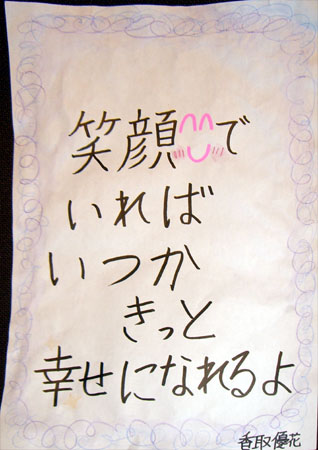 笑顔で
いれば
いつか
きっと
幸せになれるよ
香取優花